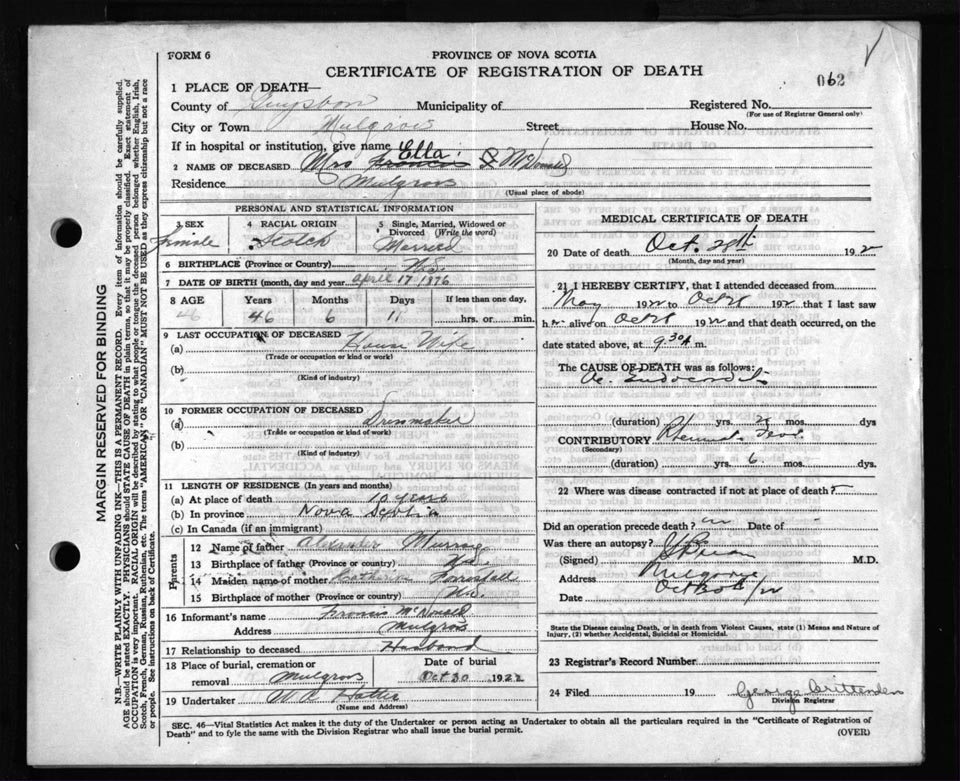 FORM 6
PROVINCE OF NOVA SCOTIA
CERTIFICATE OF REGISTRATION OF DEATH
062
1 PLACE OF DEATH—
County of Guysboro Municipality of
Registered No.
(For use of Registrar General only)
City or Town Mulgrave Street House No.
If in hospital or institution, give name
2 NAME OF DECEASED Mrs Francis Ella McDonald
Residence Mulgrave
(Usual place of abode)
PERSONAL AND STATISTICAL INFORMATION
3 SEX Female
4 RACIAL ORIGIN Scotch
5 Single, Married, Widowed or Divorced (Write the word) Married
6 BIRTHPLACE (Province or Country) N.S.
7 DATE OF BIRTH (month, day and year) April 17, 1876
8 AGE Years Months Days If less than one day,
46 46 6 11 hrs. or min.
9 LAST OCCUPATION OF DECEASED
(a) House Wife
(Trade or occupation or kind of work)
(b)
(Kind of industry)
10 FORMER OCCUPATION OF DECEASED
(a) Dressmaker
(Trade or occupation or kind of work)
(b)
(Kind of industry)
11 LENGTH OF RESIDENCE (In years and months)
(a) At place of death 10 years
(b) In province Nova Scotia
(c) In Canada (if an immigrant)
Parents
12 Name of father Alexander Murray
13 Birthplace of father (Province or Country)
14 Maiden name of mother Catherine
15 Birthplace of mother (Province or country)
16 Informant's name Francis McDonald
Address Mulgrave
17 Relationship to deceased Husband
18 Place of burial, cremation or removal Mulgrave
Date of burial Oct 30 1922
19 Undertaker W A Hattie
(Name and Address)
MEDICAL CERTIFICATE OF DEATH
20 Date of death Oct. 28th 192
(Month, day and year)
21 I HEREBY CERTIFY, that I attended deceased from
May 1922 to Oct 28 192 that I last saw
h alive on Oct 28 1922 and that death occurred, on
date stated above, at 9.30 A m.
The CAUSE OF DEATH was as follows:
Ac. Endocarditis
(duration) yrs. 2 mos. dys
CONTRIBUTORY
(Secondary)
(duration) yrs. 6 mos. dys.
22 Where was disease contracted if not at place of death?
Did an operation precede death? no Date of
Was there an autopsy?
(Signed) M.D.
Address Mulgrave
Date Oct 30th/22
State the Disease causing Death, or in death from Violent Causes, state (1) Means and Nature of
Injury, (2) whether Accidental, Suicidal or Homicidal.
23 Registrar's Record Number
24 Filed 19 George Crittenden
Division Registrar
SEC. 46—Vital Statistics Act makes it the duty of the Undertaker or person acting as Undertaker to obtain all the particulars required in the "Certificate of Registration of
Death" and to fyle the same with the Division Registrar who shall issue the burial permit.
(OVER)
MARGIN RESERVED FOR BINDING
N.B.—WRITE PLAINLY WITH UNFADING INK—THIS IS A PERMANENT RECORD. Every item of information should be carefully supplied.
AGE should be stated EXACTLY. PHYSICIANS should STATE CAUSE OF DEATH in plain terms, so that it may be properly classified. Exact statement of
OCCUPATION is very important. RACIAL ORIGIN will be described by stating to what people or tongue the deceased person belonged whether English, Irish,
Scotch, French, German, Russian, Ruthenian, etc. The terms "AMERICAN" OR "CANADIAN" MUST NOT BE USED as they express citizenship but not a race
or people. See instructions on back of Certificate.